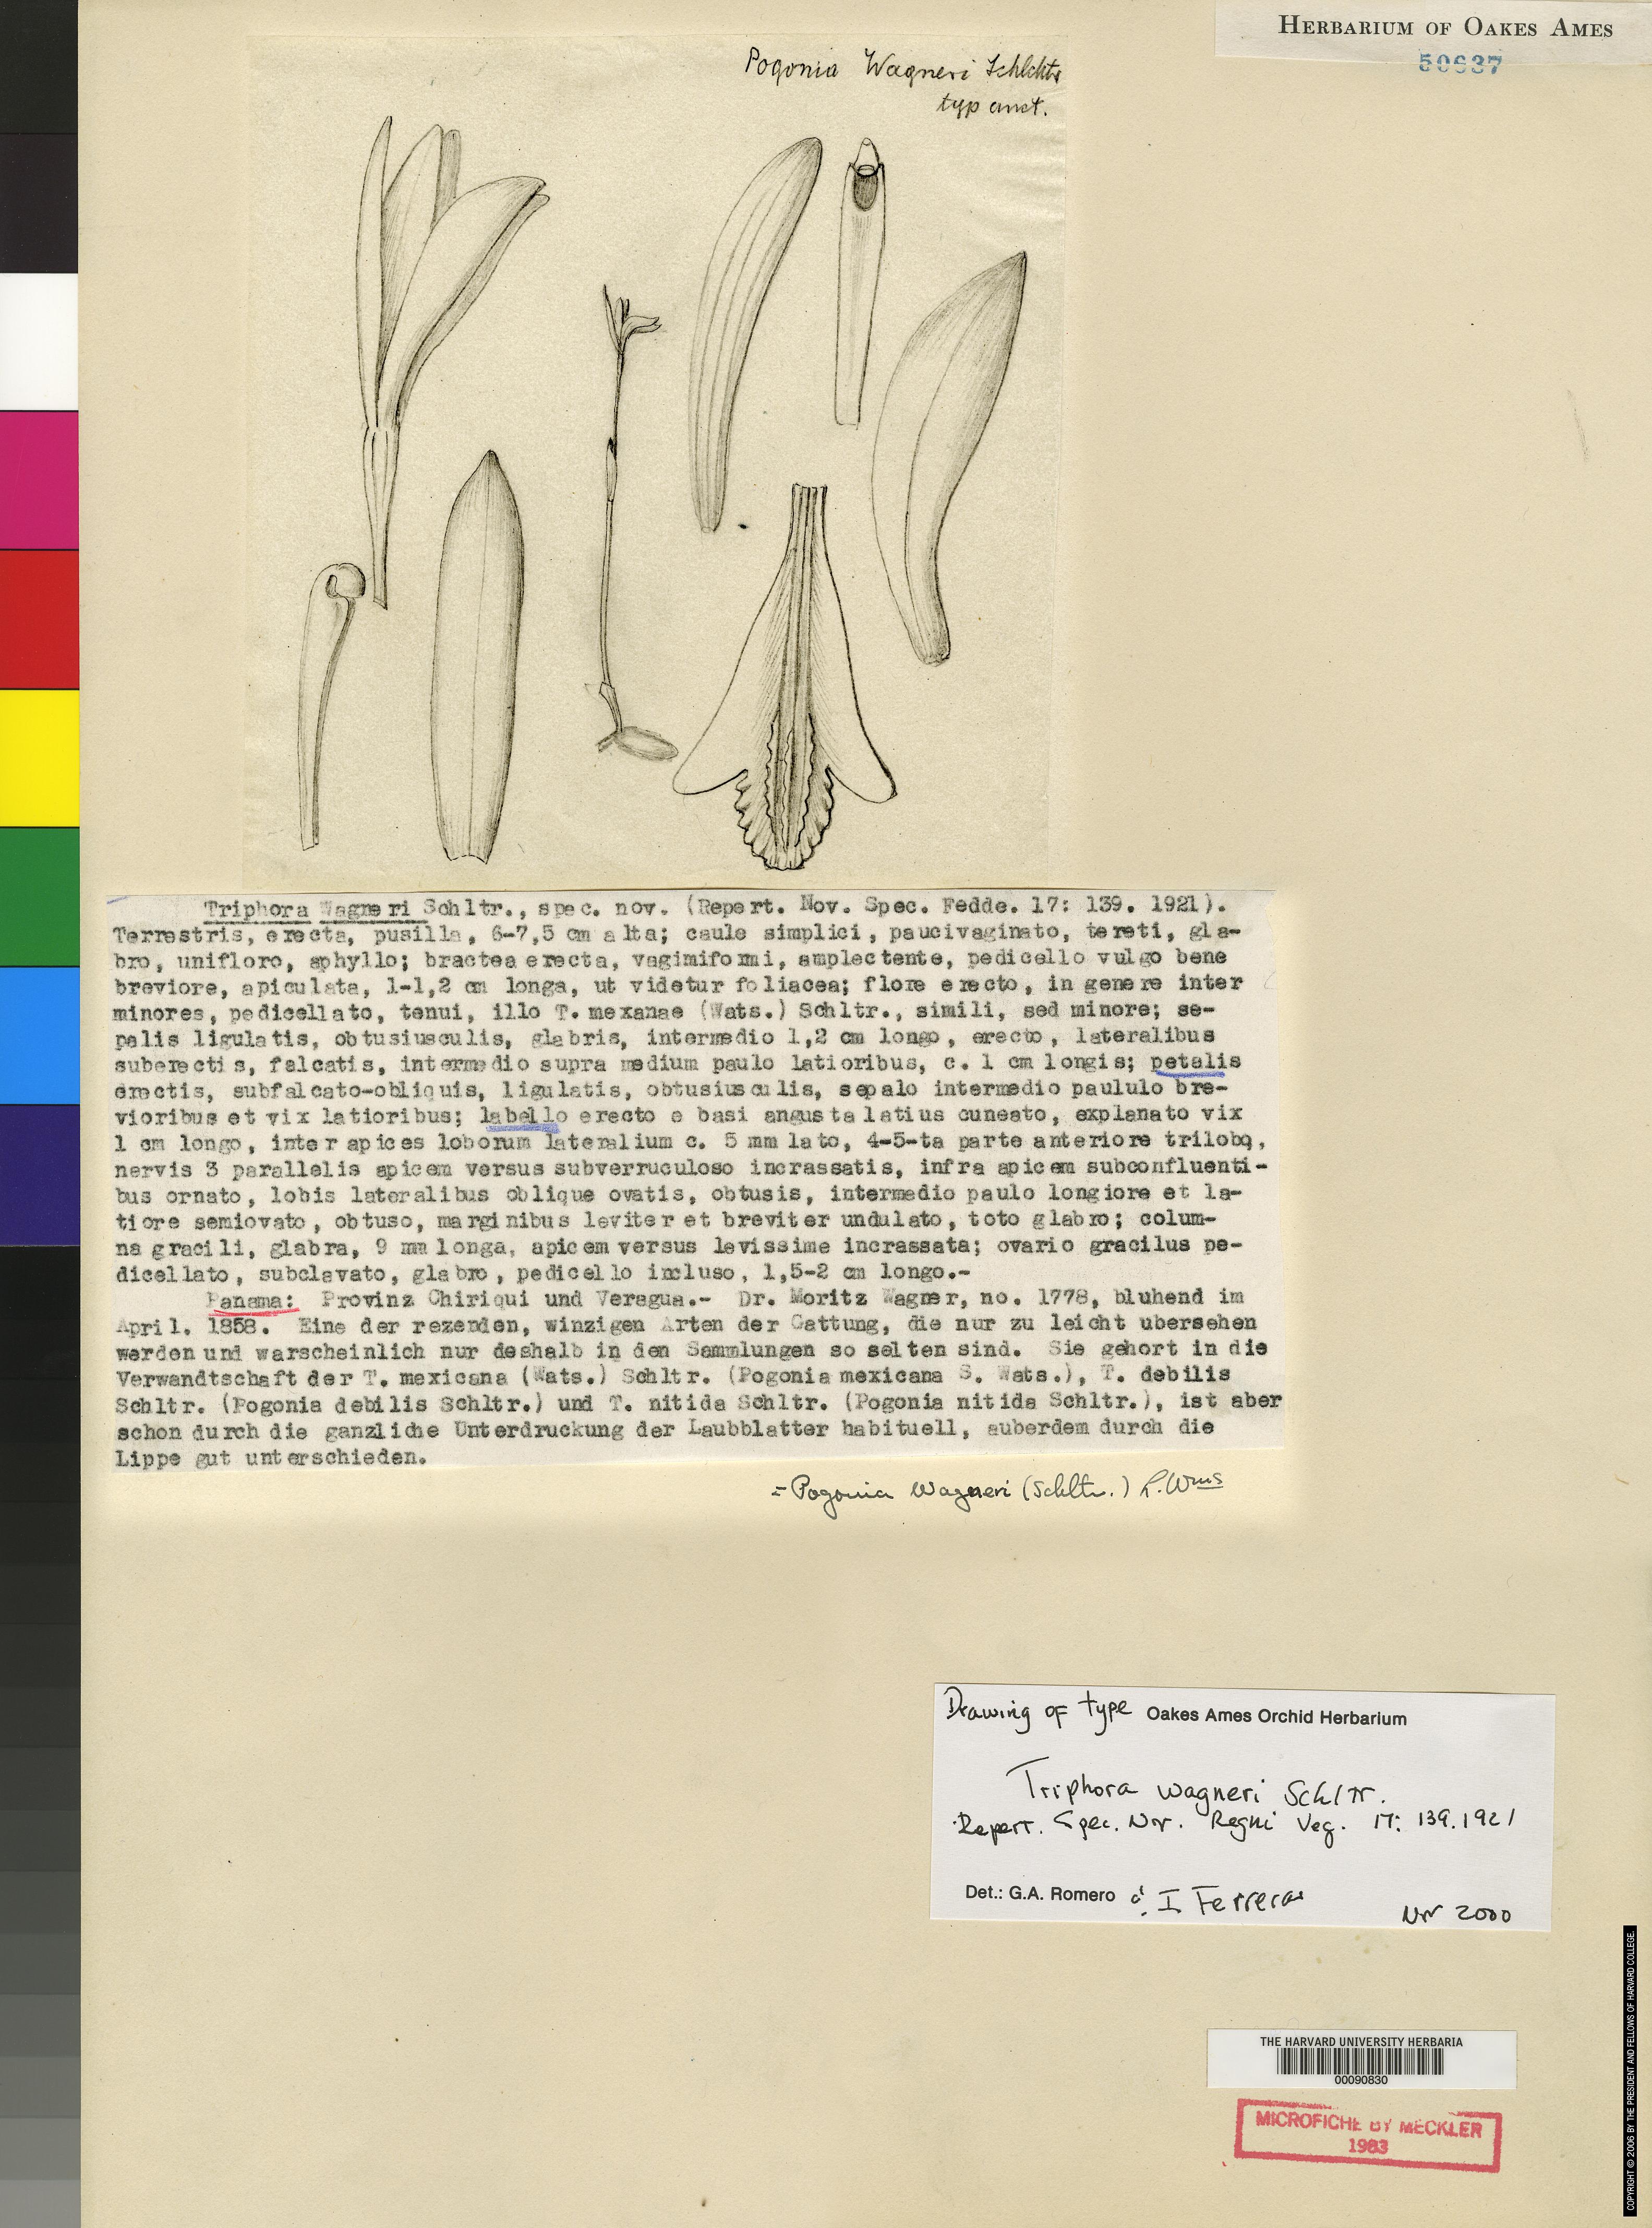 HERBARIUM OF OAKES AMES
50637
Pogonia Wagneri Schlchtr
typ anct.
Triphora Wagneri Schltr., spec. nov. (Repert. Nov. Spec. Fedde. 17: 139. 1921).
Terrestris, erecta, pusilla, 6-7,5 cm alta; caule simplici, paucivaginato, tereti, gla-
bro, unifloro, aphyllo; bractea erecta, vagimiformi, amplectente, pedicello vulgo bene
breviore, apiculata, 1-1,2 cm longa, ut videtur foliacea; flore erecto, in genere inter
minores, pedicellato, tenui, illo T. mexanae (Wats.) Schltr., simili, sed minore; se-
palis ligulatis, obtusiusculis, glabris, intermedio 1,2 cm longo, erecto, lateralibus
suberectis, falcatis, intermedio supra medium paulo latioribus, c. 1 cm longis; petalis
erectis, subfalcato-obliquis, ligulatis, obtusiusculis, sepalo intermedio paululo bre-
vioribus et vix latioribus; labello erecto e basi angusta latius cuneato, explanato vix
1 cm longo, inter apices loborum lateralium c. 5 mm lato, 4-5-ta parte anteriore trilobo,
nervis 3 parallelis apicem versus subverruculoso incrassatis, infra apicem subconfluenti-
bus ornato, lobis lateralibus oblique ovatis, obtusis, intermedio paulo longiore et la-
tiore semiovato, obtuso, marginibus leviter et breviter undulato, toto glabro; colum-
na gracili, glabra, 9 mm longa, apicem versus levissime incrassata; ovario gracilus pe-
dicellato, subclavato, glabro, pedicello incluso, 1,5-2 cm longo.-
Panama: Provinz Chiriqui und Veragua.- Dr. Moritz Wagner, no. 1778, bluhend im
April. 1858. Eine der rezenden, winzigen Arten der Gattung, die nur zu leicht ubersehen
werden und warscheinlich nur deshalb in den Sammlungen so selten sind. Sie gehort in die
Verwandtschaft der T. mexicana (Wats.) Schltr. (Pogonia mexicana S. Wats.), T. debilis
Schltr. (Pogonia debilis Schltr.) und T. nitida Schltr. (Pogonia nitida Schltr.), ist aber
schon durch die ganzliche Unterdruckung der Laubblatter habituell, auberdem durch die
Lippe gut unterschieden.
= Pogonia Wagneri (Schltr.) L. Wms
Drawing of type Oakes Ames Orchid Herbarium
Triphora wagneri Schltr.
Repert. Spec. Nov. Regni Veg. 17: 139. 1921
Det.: G.A. Romero & I Ferreras
Nov 2000
THE HARVARD UNIVERSITY HERBARIA
00090830
MICROFICHE BY MECKLER
1983
COPYRIGHT © 2006 BY THE PRESIDENT AND FELLOWS OF HARVARD COLLEGE.